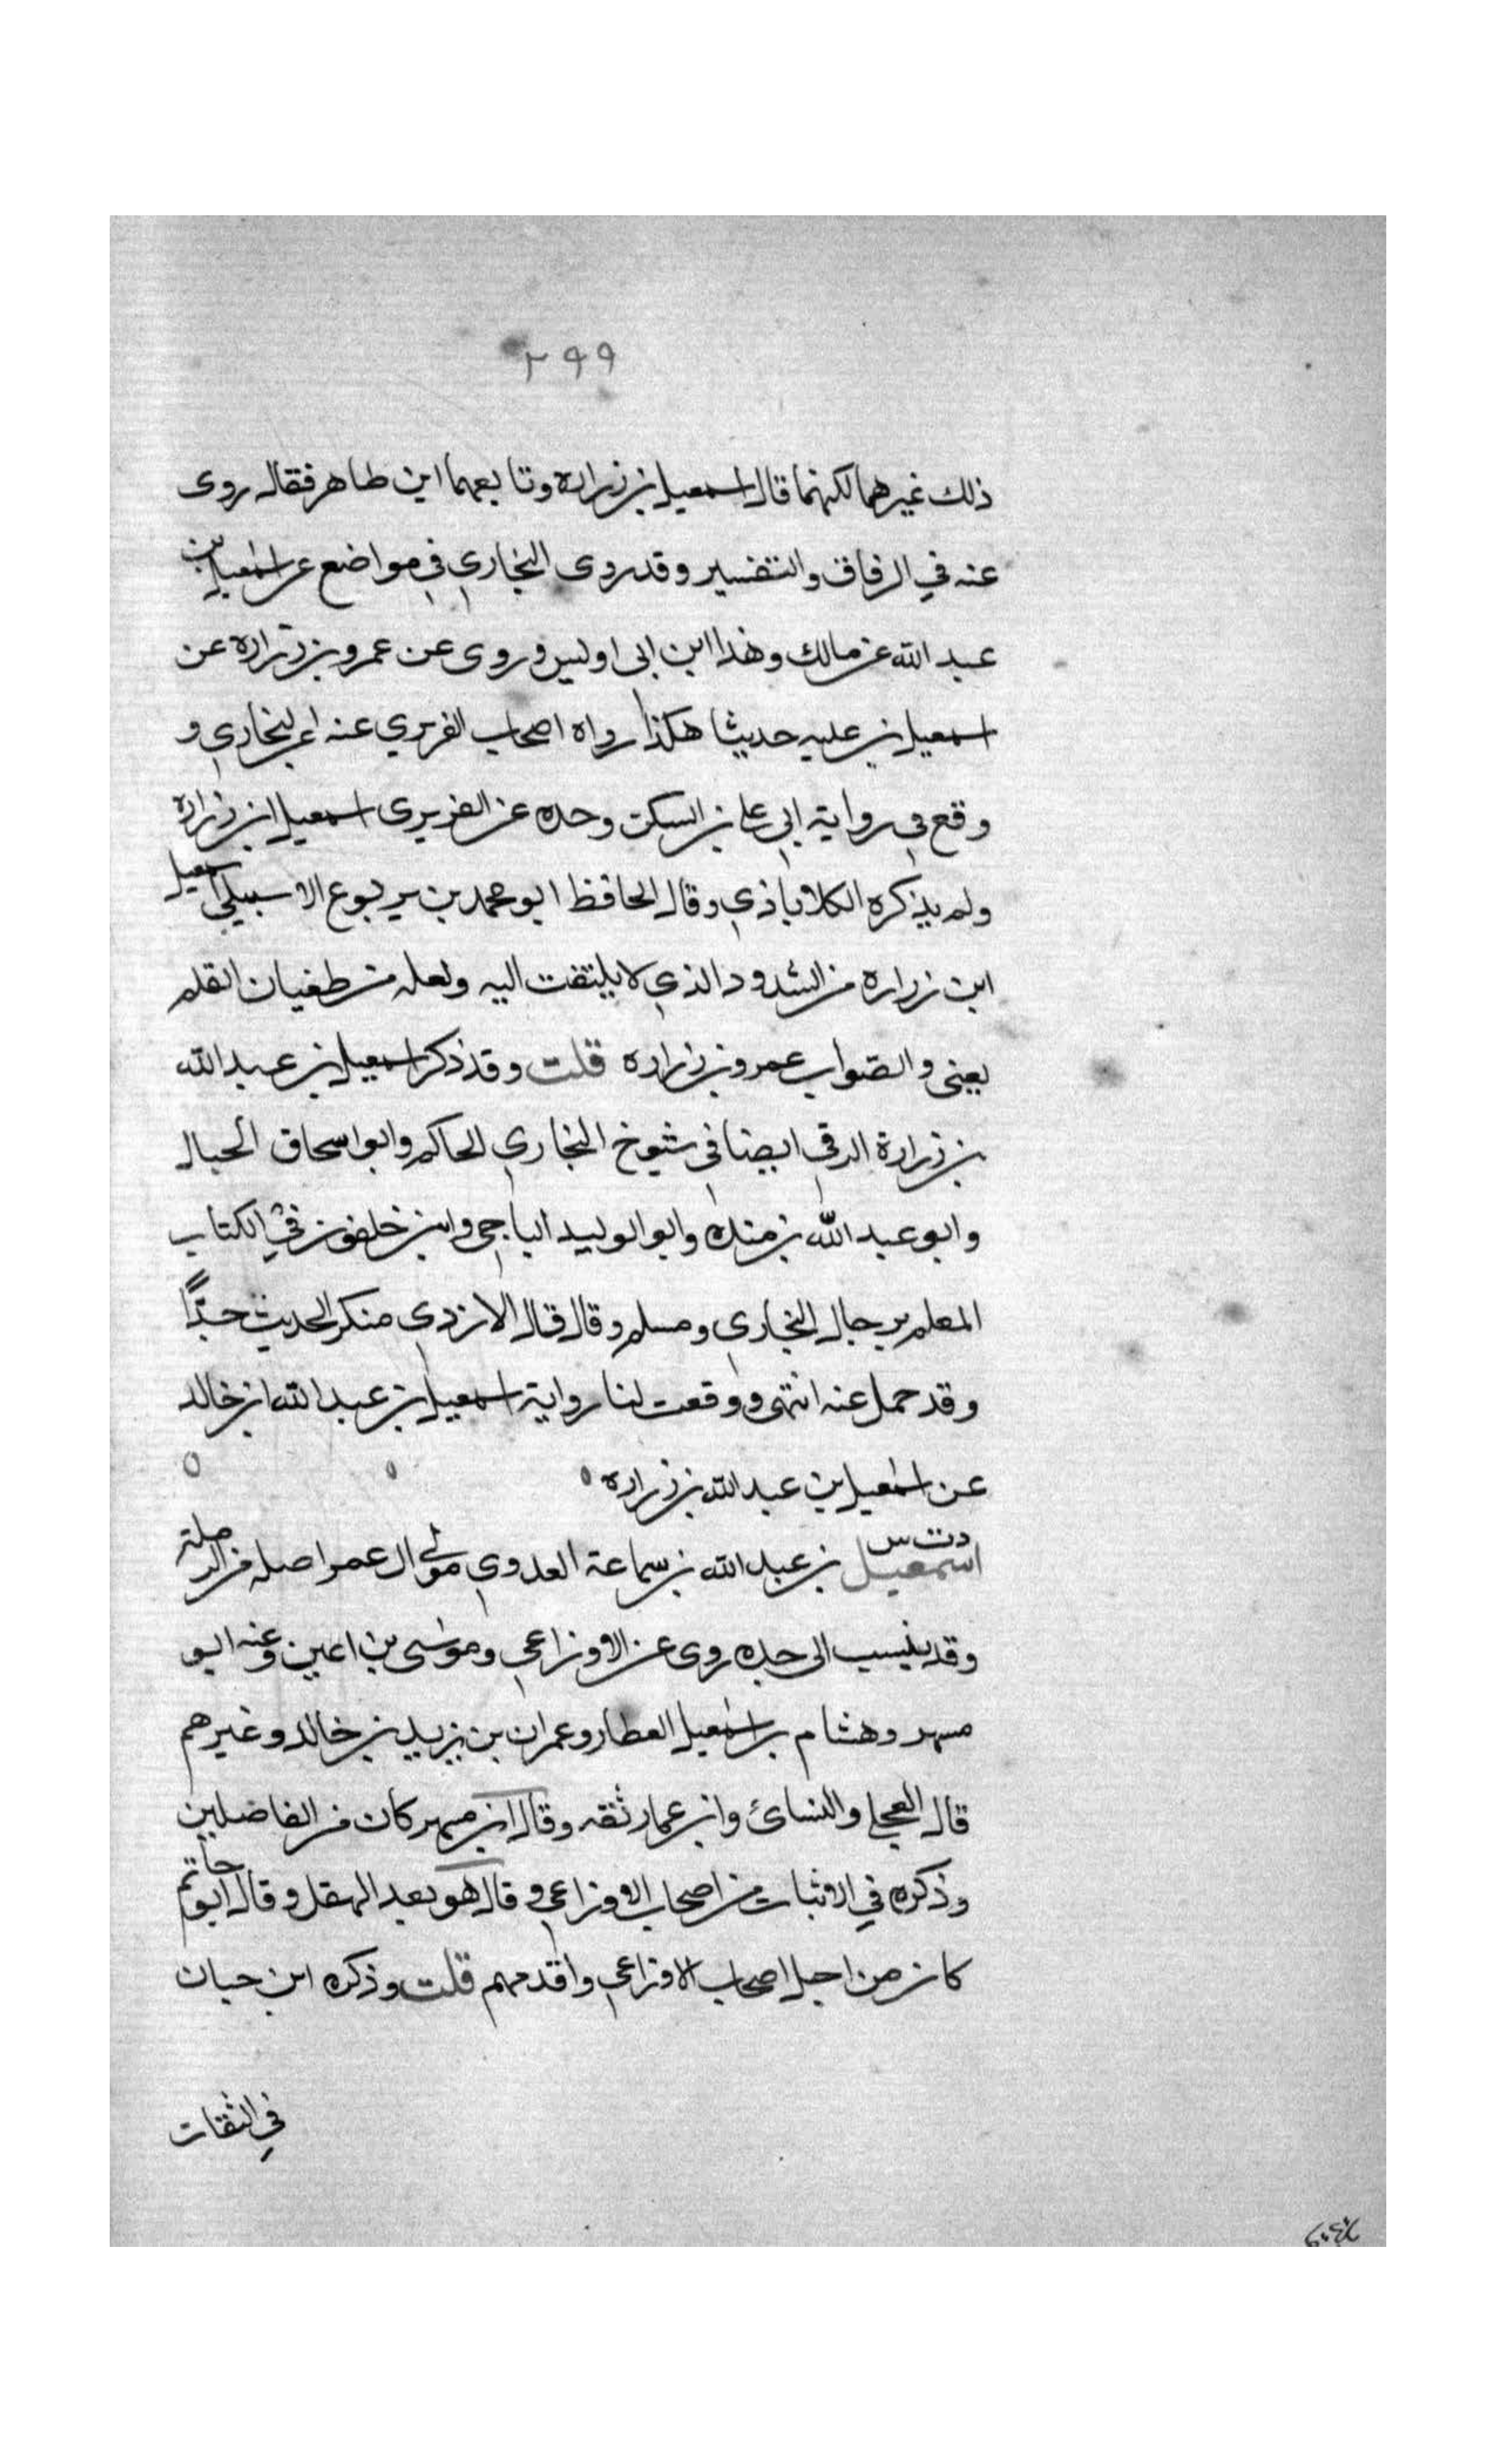 ٢٩٩
ذلك غيرهما لكنهما قال اسمعيل بن زراره وتابعهما ابن طاهر فقال روى
عنه في الرقاق والتفسير وقد روى البخاري في مواضع عن اسمعيل بن
عبد الله عن مالك وهذا ابن ابى اويس وروى عن عمرو بن زراره عن
اسمعيل بن عليه حديثا هكذا رواه اصحاب الفربري عنه عن البخاري و
وقع في رواية ابي علي بن السكن وحده عن الفربري اسمعيل بن زراره
ولم يذكره الكلاباذي وقال الحافظ ابو محمد بن يربوع الاسبيلي اسمعيل
ابن زراره من الشدود الذي لا يلتفت اليه ولعله من طغيان القلم
يعنى والصواب عمرو بن زراره قلت وقد ذكر اسمعيل بن عبد الله
بن زرارة الرقي ايضا في شيوخ البخاري الحاكم وابو اسحاق الحبال
وابو عبد الله بن منده وابو الوليد الباجي وابن خلفون في الكتاب
المعلم برجال البخاري ومسلم وقال قال الازدي منكر الحديث جدًّا
وقد حمل عنه انتهى ووقعت لنا رواية اسمعيل بن عبد الله بن خالد
عن اسمعيل بن عبد الله بن زراره
دت س
اسمعيل بن عبد الله بن سماعة العدوي مولى ال عمر اصله من الرملة
وقد ينسب الى جده روى عن الاوزاعي وموسى بن اعين وعنه ابو
مسهر وهشام بن اسمعيل العطار وعمران بن يزيد بن خالد وغيرهم
قال العجلي والنسائ وابن عمار ثقه وقال ابن مسهر كان من الفاضلين
وذكره في الاثبات من اصحاب الاوزاعي وقال هو بعد الهقل وقال ابو حاتم
كان من اجل اصحاب الاوزاعي واقدمهم قلت وذكره ابن حبان
في الثقات